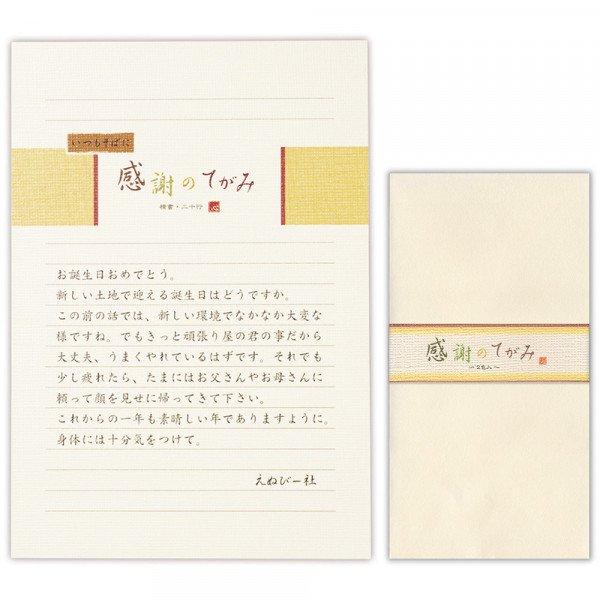 いつもそばに
感謝のてがみ
横書・二十行
心
お誕生日おめでとう。
新しい土地で迎える誕生日はどうですか。
この前の話では、新しい環境でなかなか大変な
様ですね。でもきっと頑張り屋の君の事だから
大丈夫、うまくやれているはずです。それでも
少し疲れたら、たまにはお父さんやお母さんに
頼って顔を見せに帰ってきて下さい。
これからの一年も素晴しい年でありますように。
身体には十分気をつけて。
えぬびー社
感謝のてがみ